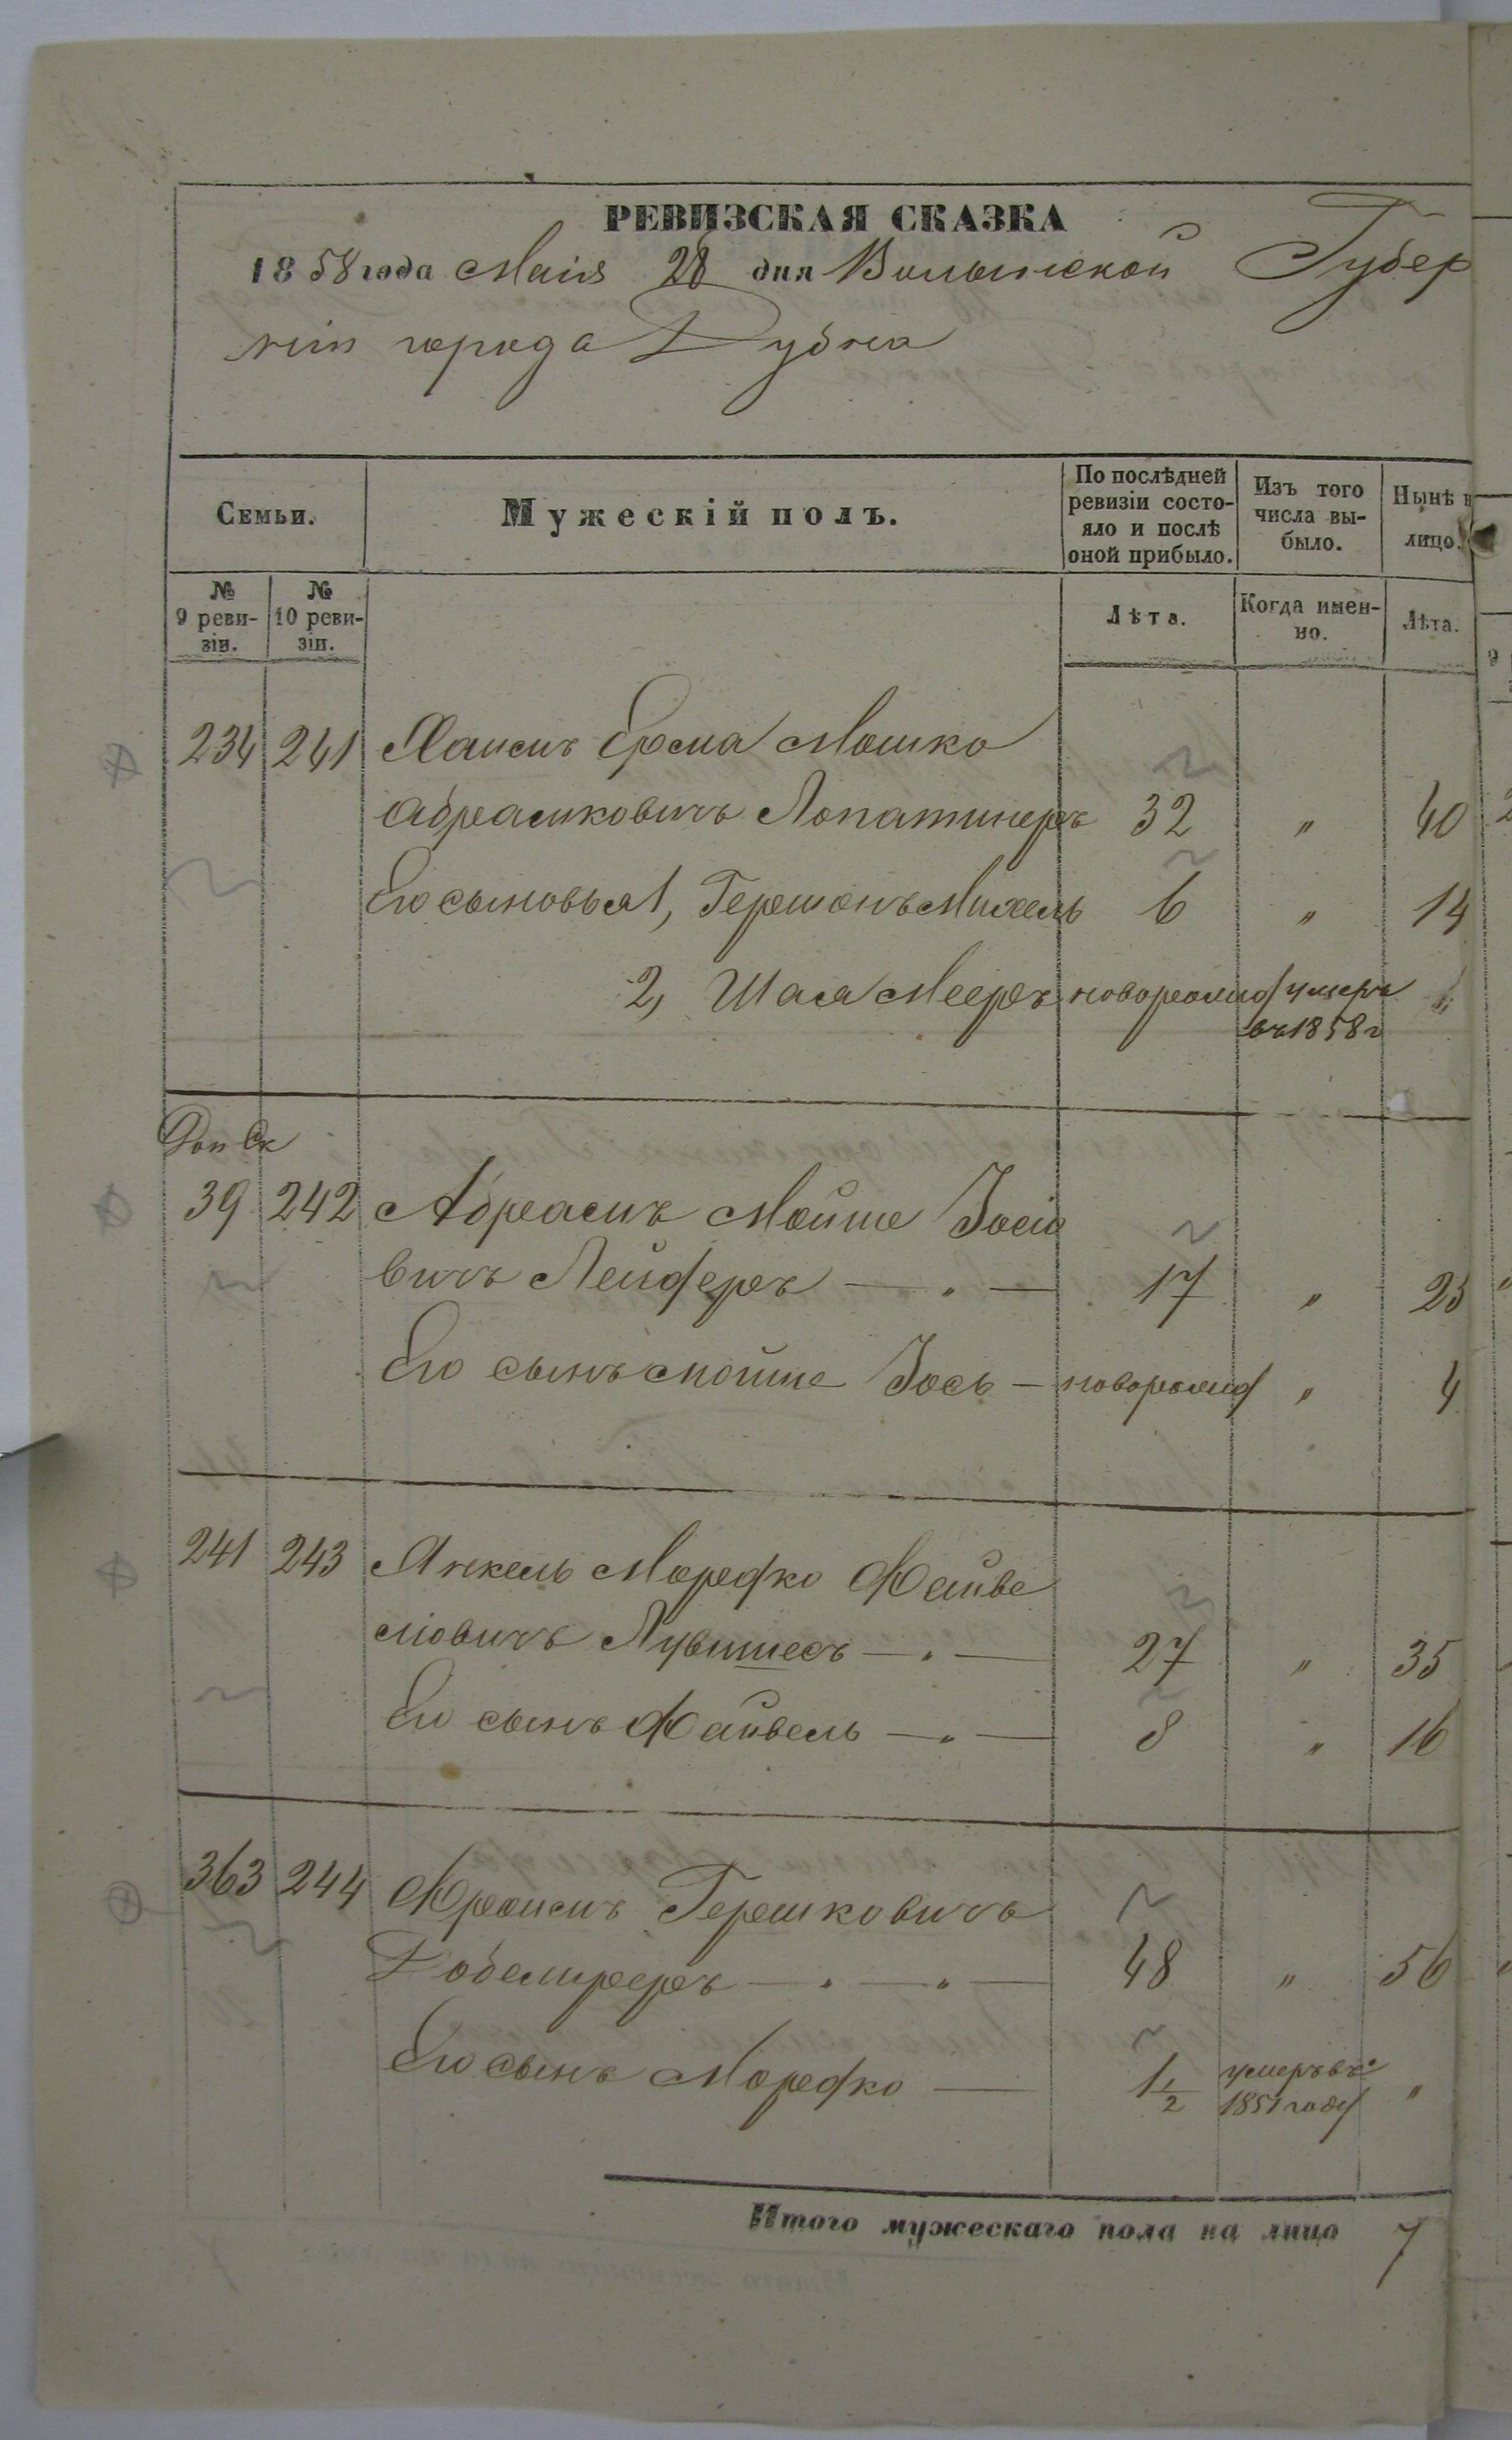 РЕВИЗСКАЯ СКАЗКА
1858 года Маія 28 дня Волынской Губер
ніи города Дубна
Семьи.
Мужескій полъ.
По послѣдней ревизіи состо-яло и послѣ оной прибыло.
Изъ того числа вы-было.
Нынѣ н лицо.
№ 9 реви-зіи.
№ 10 реви-зіи.
Лѣта.
Когда имен-но.
Лѣта.
234 241 Хаимъ Мошко
Абрамковичъ Лопатинеръ 32 " 40
Его сыновья 1, Гершонъ Михель 6 " 14
2, Шая Мееръ новорожд умеръ въ 1858 г "
Доп Ск
39 242 Абрамъ Мойше Іосіо
вичъ Лейферъ — " — 17 " 25
Его сынъ Мойше Іось — новорожд " 4
241 243 Янкель Мордко Файве
лiовичъ — " — 27 " 35
Его сынъ Файвель — " — 8 " 16
363 244 Фроимъ Гершковичъ
— " — " — 48 " 56
Его сынъ Мордко — 1 1/2 умеръ въ 1851 году "
Итого мужескаго пола на лицо 7